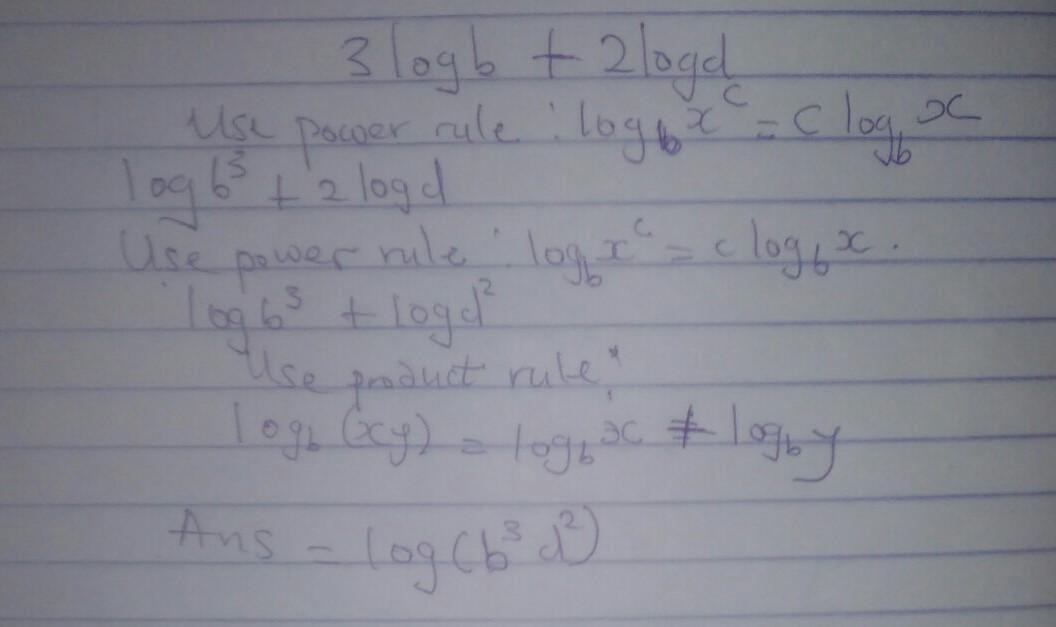 3 log b + 2 log d
Use power rule : log_b x^c = c log_b x
log b^3 + 2 log d
Use power rule : log_b x^c = c log_b x.
log b^3 + log d^2
Use product rule:
log_b (xy) = log_b x + log_b y
Ans = log (b^3 d^2)